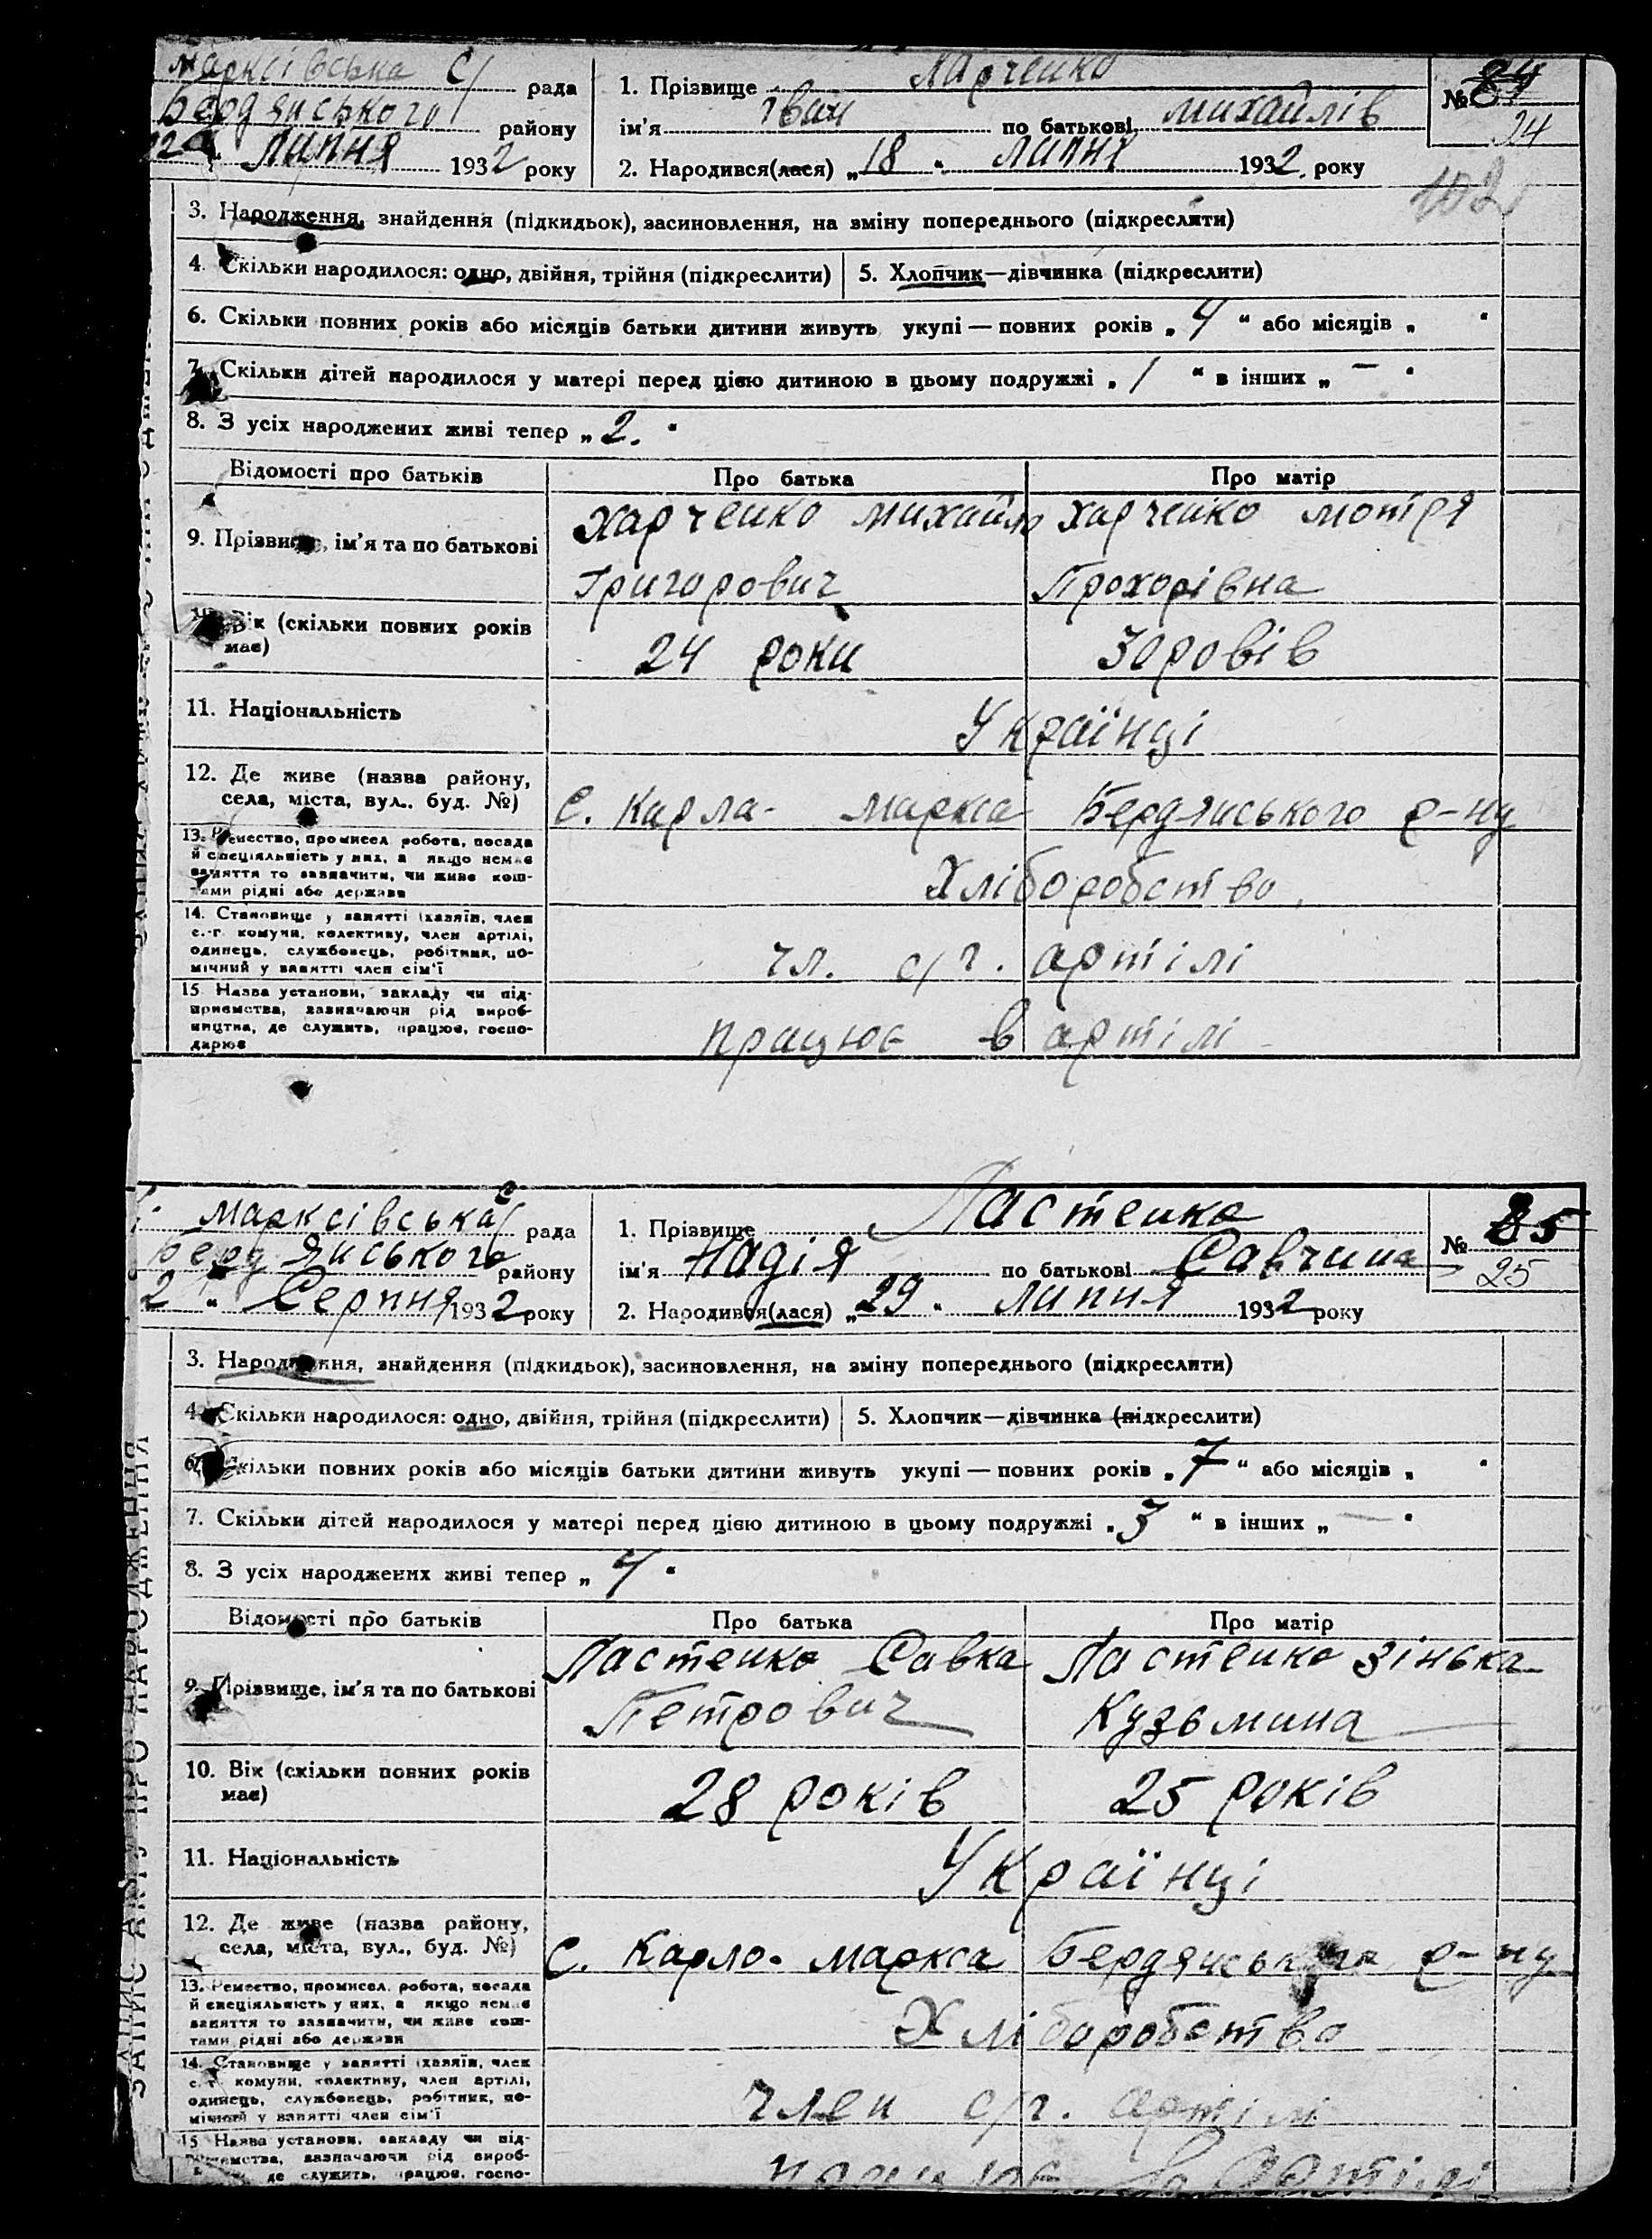 Марксівська с/ рада
Бердянського району
22 липня 1932 року
1. Прізвище Харченко
ім'я Іван по батькові Михайлів
2. Народився(лася) „18" липня 1932 року
№ 84
24
102
3. Народження, знайдення (підкидьок), засиновлення, на зміну попереднього (підкреслити)
4. Скільки народилося: одно, двійня, трійня (підкреслити) 5. Хлопчик—дівчинка (підкреслити)
6. Скільки повних років або місяців батьки дитини живуть укупі — повних років „4" або місяців „ "
7. Скільки дітей народилося у матері перед цією дитиною в цьому подружжі „1" в інших „—"
8. З усіх народжених живі тепер „2."
Відомості про батьків Про батька Про матір
9. Прізвище, ім'я та по батькові
Харченко Михайло Харченко Мотря
Григорович Прохорівна
10. Вік (скільки повних років
має)
24 роки 30 ровів
11. Національність
Українці
12. Де живе (назва району,
села, міста, вул., буд. №)
С. Карла-Маркса Бердянського р-ну
13. Ремество, промисел, робота, посада
й спеціяльність у них, а якщо немає
заняття то зазначити, чи живе кош-
тами рідні або держави
Хліборобство
14. Становище у занятті (хазяїн, член
с.-г. комуни, колективу, член артілі,
одинець, службовець, робітник, по-
мічний у занятті член сім'ї
чл. с/г. артілі
15. Назва установи, закладу чи під-
приємства, зазначаючи рід вироб-
ництва, де служить, працює, госпо-
дарює
працює в артілі
Марксівська с/ рада
Бердянського району
2 " Серпня 1932 року
1. Прізвище Ластенко
ім'я Надія по батькові Савчина
2. Народився(лася) „29" липня 1932 року
№ 85
25
3. Народження, знайдення (підкидьок), засиновлення, на зміну попереднього (підкреслити)
4. Скільки народилося: одно, двійня, трійня (підкреслити) 5. Хлопчик—дівчинка (підкреслити)
6. Скільки повних років або місяців батьки дитини живуть укупі — повних років „7" або місяців „ "
7. Скільки дітей народилося у матері перед цією дитиною в цьому подружжі „3" в інших „—"
8. З усіх народжених живі тепер „4"
Відомості про батьків Про батька Про матір
9. Прізвище, ім'я та по батькові
Ластенко Савка Ластенко Зінька
Петрович Кузьмина
10. Вік (скільки повних років
має)
28 років 25 років
11. Національність
Українці
12. Де живе (назва району,
села, міста, вул., буд. №)
С. Карло-Маркса Бердянського р-ну
13. Ремество, промисел, робота, посада
й спеціяльність у них, а якщо немає
заняття то зазначити, чи живе кош-
тами рідні або держави
Хліборобство
14. Становище у занятті (хазяїн, член
с.-г. комуни, колективу, член артілі,
одинець, службовець, робітник, по-
мічний у занятті член сім'ї
член с/г. артілі
15. Назва установи, закладу чи під-
приємства, зазначаючи рід вироб-
де служить, працює, госпо-
працює в артілі
ЗАПИС АКТУ ПРО НАРОДЖЕННЯ